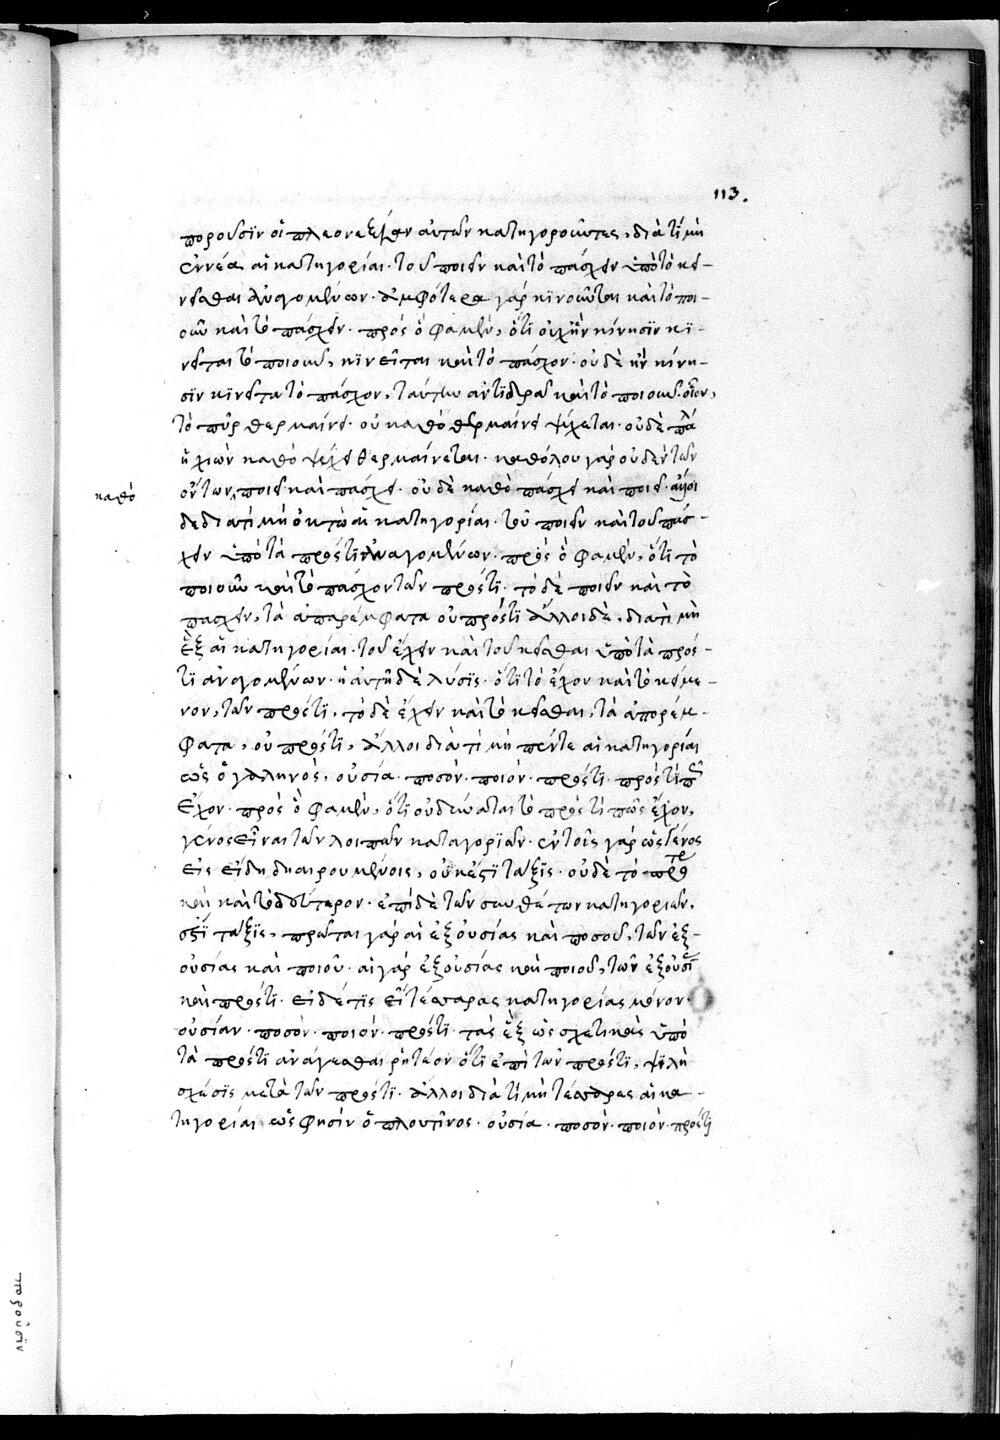 113.
πορουσῒν οἱ πλεονεξίαν αὐτῶν κατηγοροῦντες, διὰ τί μὴ
ἐννέα αἱ κατηγορίαι· τοῦ ποιεῖν καὶ τὸ πάσχειν ὑπὸ τὸ κι-
νεῖσθαι ἀναγομένων· ἀμφότερα γάρ κϊνοῦνται καὶ τὸ ποι-
οῦν καὶ τὸ πάσχειν· πρὸς ὃ φαμὲν, ὅτι οὐχ ἣν κίνησϊν κϊ-
νεῖται τὸ ποιοῦν, κϊνεῖται καὶ τὸ πάσχον· οὐδὲ ἣν κίνη-
σϊν κϊνεῖται τὸ πάσχον, ταύτην ἀντιδρᾶ καὶ τὸ ποιοῦν· οἷον,
τὸ πῦρ θερμαίνει· οὐ καθὸ θερμαίνει ψύχεται· οὐδὲ πά
ἡ χιὼν καθὸ ψύχει θερμαίνεται· καθόλου γάρ οὐδὲν τῶν
καθὸ
ὄντων, ποιεῖ καὶ πάσχει· οὐδὲ καθὸ πάσχει καὶ ποιεῖ· ἄλλοι
δε διατί μὴ ὀκτὼ αἱ κατηγορίαι· τοῦ ποιεῖν καὶ τοῦ πάσ-
χειν ὑπὸ τὰ πρόστι ἀναγομένων· πρὸς ὃ φαμὲν, ὅτι τὸ
ποιοῦν καὶ τὸ πάσχον τῶν πρόστι· τὸ δὲ ποιεῖν καὶ τὸ
πασχειν, τὰ ἀπαρέμφατα οὐ πρόστϊ ἄλλοι δὲ, διατὶ μὴ
ἓξ αἱ κατηγορίαι· τοῦ ἔχειν καὶ τοῦ κεῖσθαι ὑπὸ τὰ πρός-
τϊ ἀναγομένων· ἡ αὐτὴ δὲ λύσϊς· ὅτι τὸ ἔχον καὶ τὸ κείμε-
νον, τῶν πρόστϊ, τὸ δὲ ἔχειν καὶ τὸ κεῖσθαι, τὰ ἀπορέμ-
φατα, οὐ πρόστϊ, ἄλλοι διὰ τὶ μὴ πέντε αἱ κατηγορίαι
ὡς ὁ γαληνός, οὐσία· ποσὸν· ποιόν· πρόστι· πρὸς τί π
ἔχον· πρὸς ὃ φαμὲν, ὅτι οὐ δύναται τὸ πρόστι πῶς ἔχον,
γένος εἶναι τῶν λοιπῶν καταγορϊῶν· ἐν τοῖς γάρ ὡς γένος
εἰς εἴδη διαιρουμένοις, οὐκ ἔστϊ τάξϊς· οὐδὲ τὸ πρό
καὶ καὶ τὸ δεύτερον· ἐπὶ δὲ τῶν συνθέτων κατηγοριῶν,
ἐστϊ τάξϊς, πρῶται γάρ αἱ ἐξ οὐσίας καὶ ποσοῦ, τῶν ἐξ-
οὐσίας καὶ ποιοῦ· αἱ γάρ ἐξ οὐσίας καὶ ποιοῦ, τῶν ἐξ οὐσϊ
καὶ πρόστι· εἰ δέ τϊς εἴη τέσσαρας κατηγορίας μόνον·
οὐσίαν· ποσὸν· ποιόν· πρόστι· τὰς ἓξ ὡς σχετικὰς ὑπὸ
τὰ πρόστι ἀνάγεσθαι ῥητέον ὅτι ἐπὶ τῶν πρόστι, ψϊλὴ
σχέσϊς μετὰ τῶν πρόστι· ἄλλοι διὰ τί μὴ τέσσαρες αἱ κα-
τηγορίαι ὡς φησὶν ὁ πλουτῖνος· οὐσία· ποσὸν· ποιὸν· πρόστι